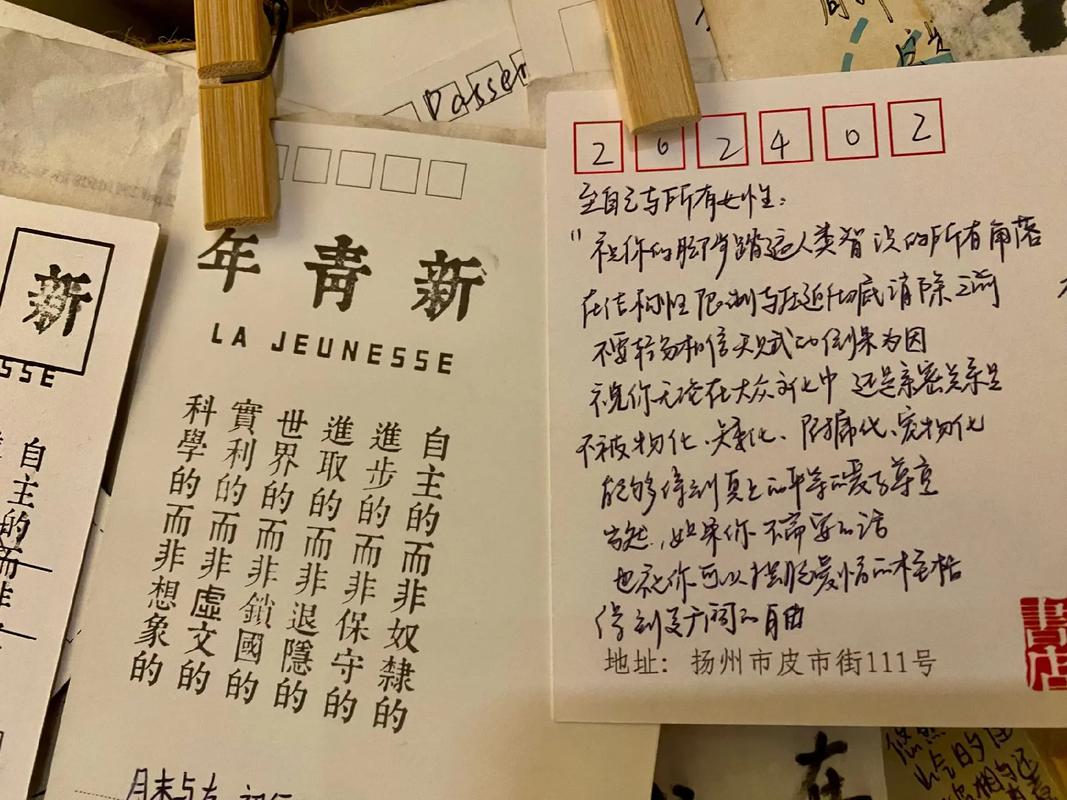 Passen
年青新
LA JEUNESSE
自主的而非奴隸的
進步的而非保守的
進取的而非退隱的
世界的而非鎖國的
實利的而非虛文的
科學的而非想象的
新
SSE
自主的而非
262402
至自己与所有女性：
"祝你的脚步踏遍人类智识的所有角落
在结构性限制与压迫彻底消除之前
不要轻易相信天赋的倒果为因
祝你无论在大众文化中还是亲密关系里
不被物化、矮化、附庸化、宠物化
能够得到真正的平等的爱与尊重
当然，如果你不需要的话
也祝你可以摆脱爱情的桎梏
得到更广阔的自由
地址：扬州市皮市街111号